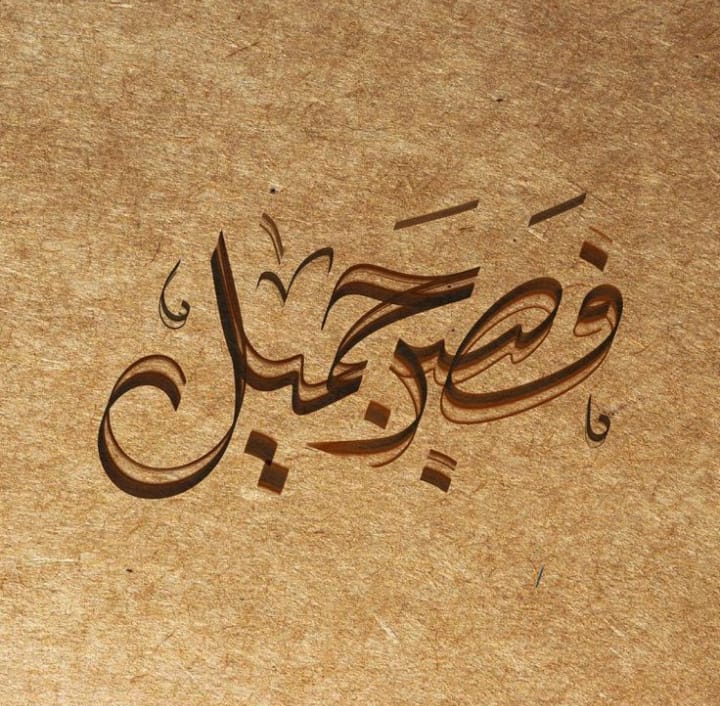 فَصبر جَميل